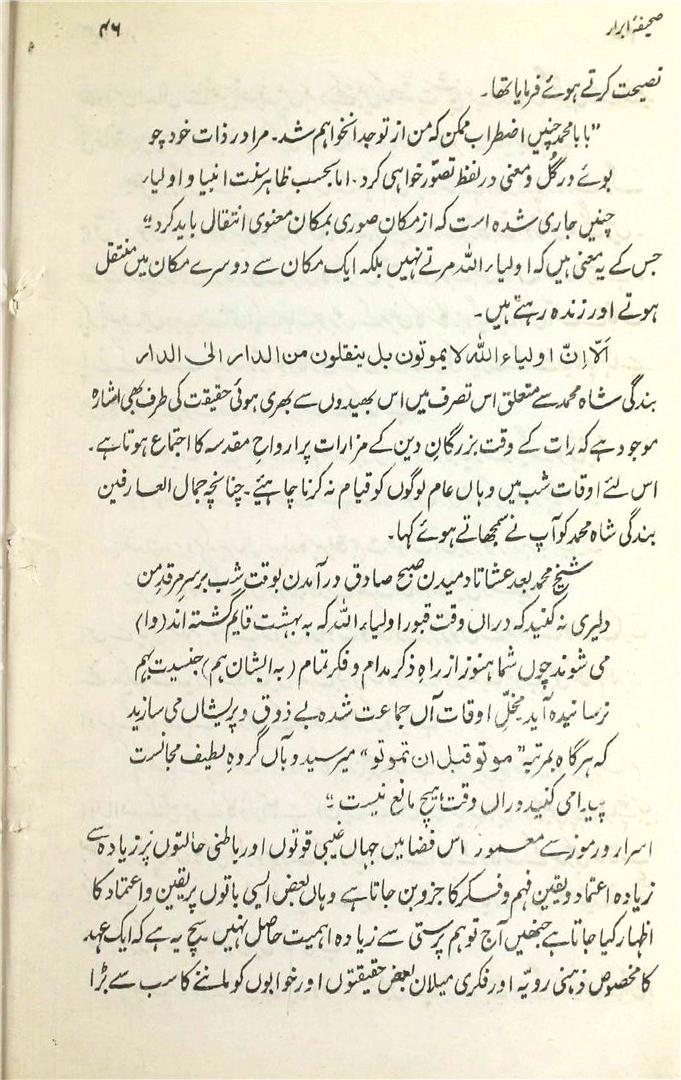 صحیفۂ ابرار
۴۶
نصیحت کرتے ہوئے فرمایا تھا۔
"بابا محمد چنیں اضطراب ممکن کہ من از تو جدا نخواہم شد۔ مرا در ذات خود چو
بوئے در گل و معنی در لفظ تصوّر خواہی کرد۔ اما بحسب ظاہر سنت انبیا و اولیاء
چنیں جاری شدہ است کہ از مکان صوری بمکان معنوی انتقال باید کرد"
جس کے یہ معنی ہیں کہ اولیاء اللہ مرتے نہیں بلکہ ایک مکان سے دوسرے مکان میں منتقل
ہوتے اور زندہ رہتے ہیں۔
اَلَا اِنَّ اولیاء اللہ لا یموتون بل ینقلون من الدار الیٰ الدار
بندگی شاہ محمد سے متعلق اس تصرف میں اس بھیدوں سے بھری ہوئی حقیقت کی طرف بھی اشارہ
موجود ہے کہ رات کے وقت بزرگانِ دین کے مزارات پر ارواحِ مقدسہ کا اجتماع ہوتا ہے۔
اس لئے اوقات شب میں وہاں عام لوگوں کو قیام نہ کرنا چاہیئے۔ چنانچہ جمال العارفین
بندگی شاہ محمد کو آپ نے سمجھاتے ہوئے کہا۔
شیخ محمد بعد عشا تا دمیدن صبح صادق در آمدن بوقت شب بر سرِ مرقدِ من
دلیری نہ کنید کہ دراں وقت قبور اولیاء اللہ کہ بہ بہشت قایم گشتہ اند (وا)
می شوند چوں شما ہنوز از راہِ ذکر مدام و فکر تمام (بہ ایشان ہم) جنسیت بہم
نرسانیدہ آید مخلِّ اوقات آں جماعت شدہ بے ذوق و پریشاں می سازید
کہ ہر گاہ بمرتبہ "موتو قبل ان تموتو" میرسید و بآں گروہِ لطیف مجانست
پیدا می کنید دراں وقت ہیچ مانع نیست"
اسرار و رموز سے معمور اس فضا میں جہاں غیبی قوتوں اور باطنی حالتوں پر زیادہ سے
زیادہ اعتماد و یقین فہم و فکر کا جزو بن جاتا ہے وہاں بعض ایسی باتوں پر یقین و اعتماد کا
اظہار کیا جاتا ہے جنھیں آج توہم پرستی سے زیادہ اہمیت حاصل نہیں سچ یہ ہے کہ ایک عہد
کا مخصوص ذہنی رویّہ اور فکری میلان بعض حقیقتوں اور خوابوں کو ماننے کا سب سے بڑا